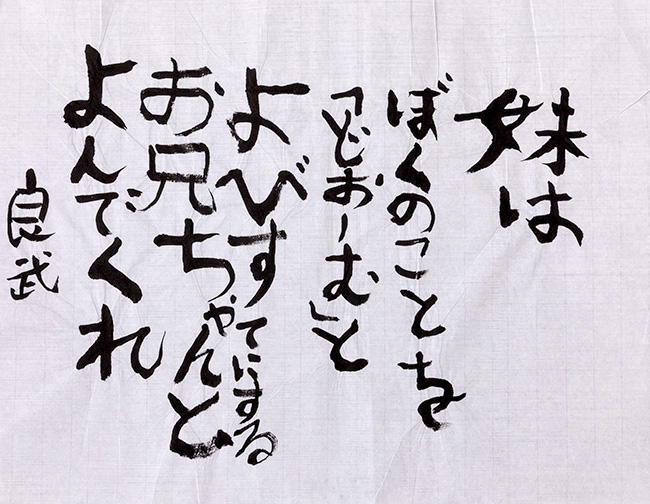 妹は
ぼくのことを
「どおーむ」と
よびすてにする
お兄ちゃんと
よんでくれ
良武